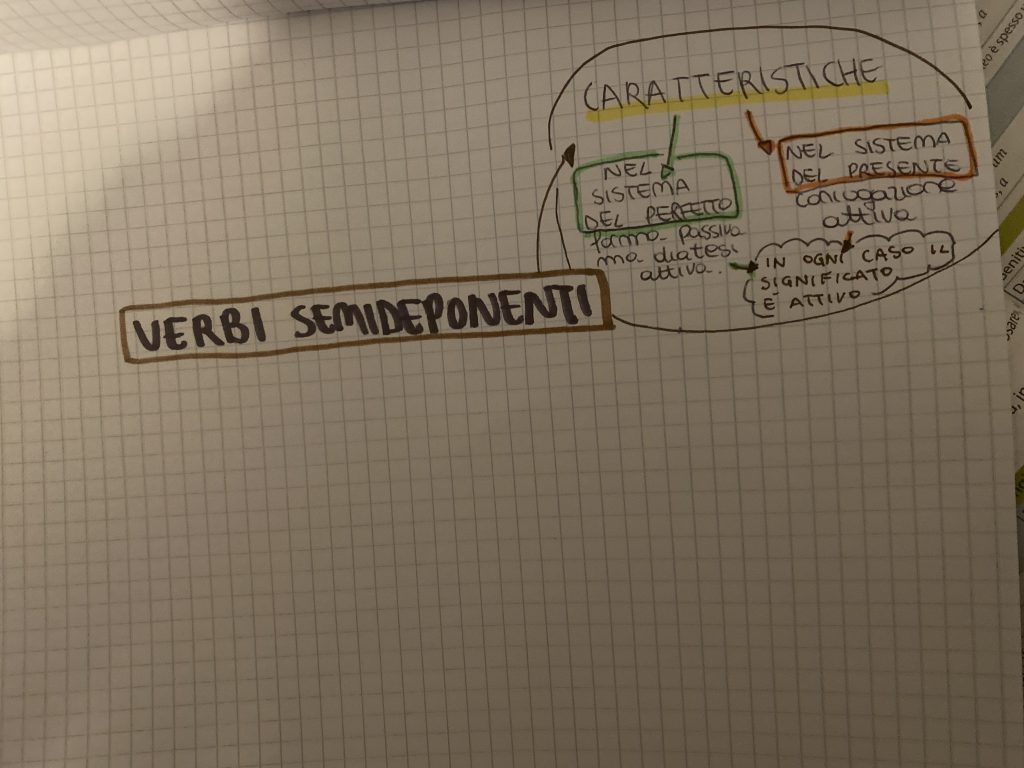 CARATTERISTICHE
NEL
SISTEMA
DEL PERFETTO
forma passiva
ma diatesi
attiva.
NEL SISTEMA
DEL PRESENTE
coniugazione
attiva
IN OGNI CASO IL
SIGNIFICATO
E' ATTIVO
VERBI SEMIDEPONENTI